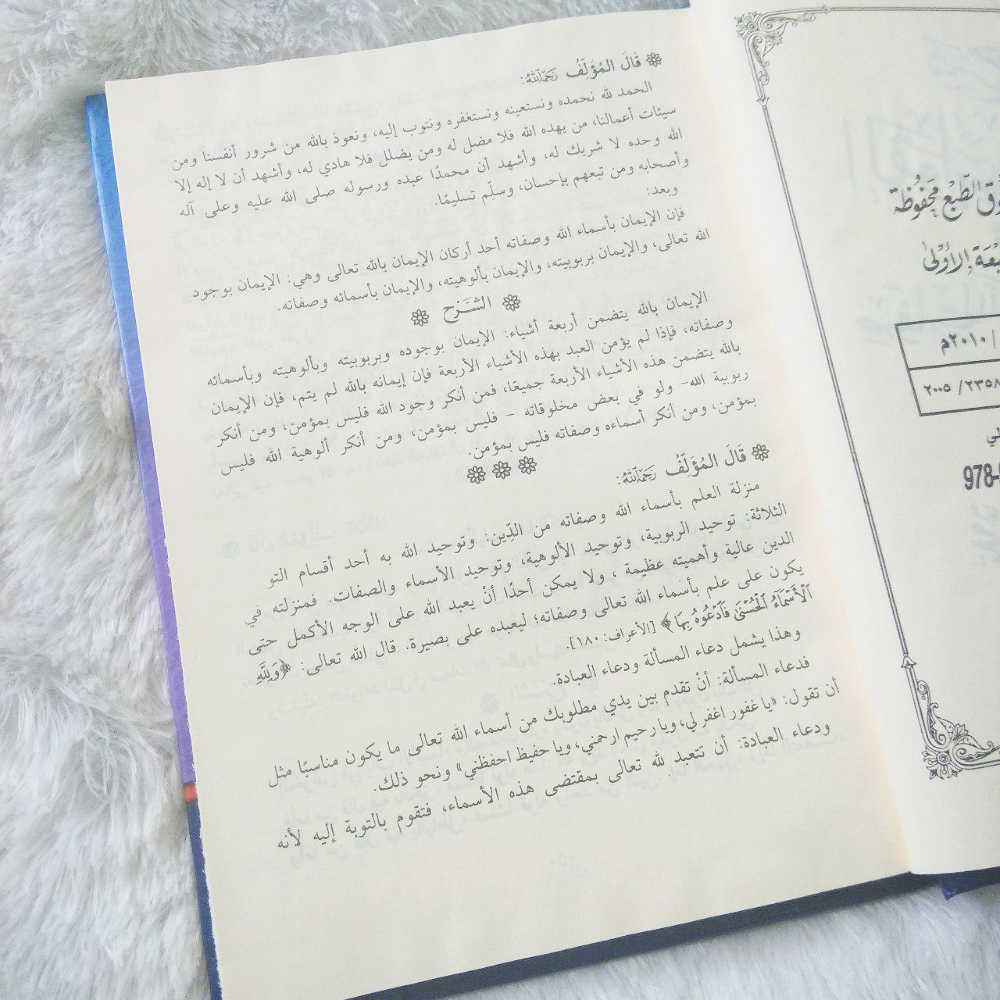 قَالَ المُؤَلِّفُ رَحِمَهُ اللَّهُ:
الحمد لله نحمده ونستعينه ونستغفره ونتوب إليه، ونعوذ بالله من شرور أنفسنا ومن
سيئات أعمالنا، من يهده الله فلا مضل له ومن يضلل فلا هادي له، وأشهد أن لا إله إلا
الله وحده لا شريك له، وأشهد أن محمدًا عبده ورسوله صلى الله عليه وعلى آله
وأصحابه ومن تبعهم بإحسان، وسلّم تسليمًا.
وبعد:
فإن الإيمان بأسماء الله وصفاته أحد أركان الإيمان بالله تعالى وهي: الإيمان بوجود
الله تعالى، والإيمان بربوبيته، والإيمان بألوهيته، والإيمان بأسمائه وصفاته.
الشَّرْح
الإيمان بالله يتضمن أربعة أشياء: الإيمان بوجوده وبربوبيته وبألوهيته وبأسمائه
وصفاته، فإذا لم يؤمن العبد بهذه الأشياء الأربعة فإن إيمانه بالله لم يتم، فإن الإيمان
بالله يتضمن هذه الأشياء الأربعة جميعًا، فمن أنكر وجود الله فليس بمؤمن، ومن أنكر
ربوبية الله- ولو في بعض مخلوقاته - فليس بمؤمن، ومن أنكر ألوهية الله فليس
بمؤمن، ومن أنكر أسماءه وصفاته فليس بمؤمن.
قَالَ المُؤَلِّفُ رَحِمَهُ اللَّهُ:
منزلة العلم بأسماء الله وصفاته من الدِّين: وتوحيد الله به أحد أقسام التو
الثلاثة: توحيد الربوبية، وتوحيد الألوهية، وتوحيد الأسماء والصفات. فمنزلته في
الدين عالية وأهميته عظيمة ، ولا يمكن أحدًا أنْ يعبد الله على الوجه الأكمل حتى
يكون على علم بأسماء الله تعالى وصفاته؛ ليعبده على بصيرة. قال الله تعالى: ﴿وَلِلَّهِ
ٱلۡأَسۡمَآءُ ٱلۡحُسۡنَىٰ فَٱدۡعُوهُ بِهَا﴾ [الأعراف: ١٨٠].
وهذا يشمل دعاء المسألة ودعاء العبادة.
فدعاء المسألة: أنْ تقدم بين يدي مطلوبك من أسماء الله تعالى ما يكون مناسبًا مثل
أن تقول: «يا غفور اغفر لي، ويا رحيم ارحمني، ويا حفيظ احفظني» ونحو ذلك.
ودعاء العبادة: أن تتعبد لله تعالى بمقتضى هذه الأسماء، فتقوم بالتوبة إليه لأنه
الطّبع محفوظة
الأولى
/ ٢٠١٠م
٢٣٥٨/ ٢٠٠٥
978-